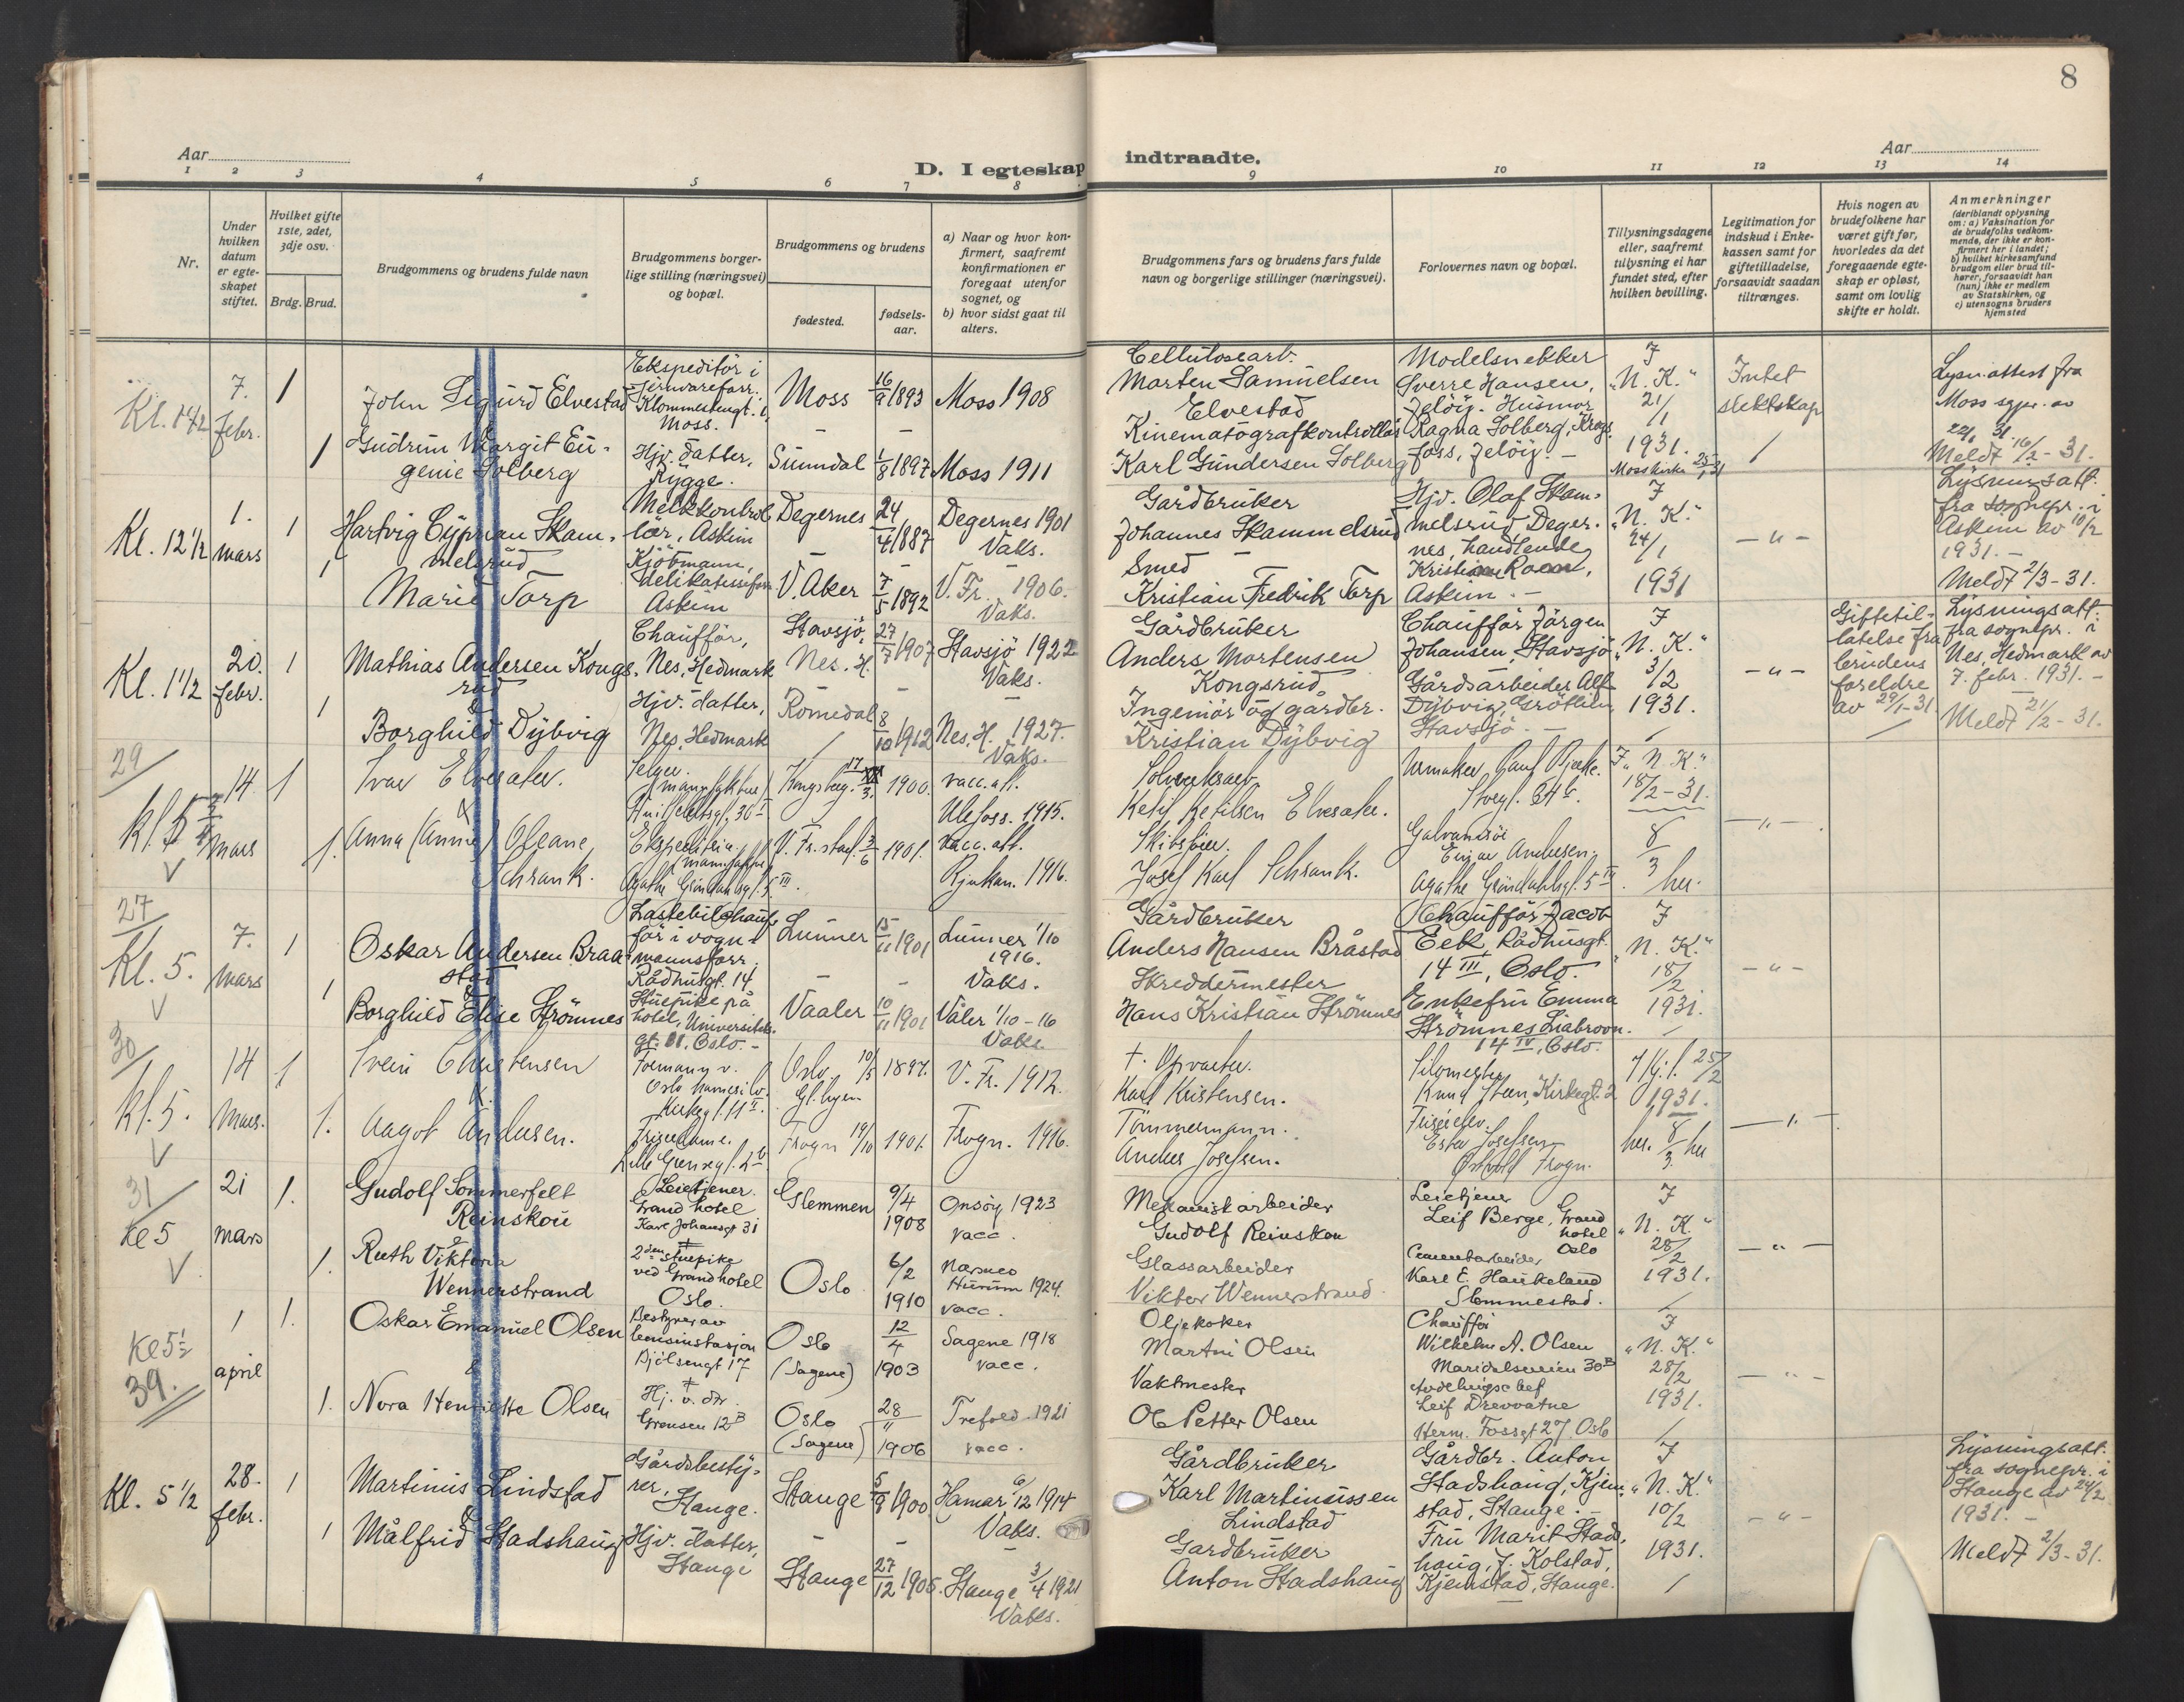 8
Aar
D. I egteskap indtraadte.
Aar
1 2 3 4 5 6 7 8 9 10 11 12 13 14
Nr.
Under hvilken datum er egteskapet stiftet.
Hvilket gifte 1ste, 2det, 3dje osv.
Brdg. Brud.
Brudgommens og brudens fulde navn
Brudgommens borgerlige stilling (næringsvei) og bopæl.
Brudgommens og brudens
fødested.
fødselsaar.
a) Naar og hvor konfirmert, saafremt konfirmationen er foregaat utenfor sognet, og
b) hvor sidst gaat til alters.
Brudgommens fars og brudens fars fulde navn og borgerlige stillinger (næringsvei).
Forlovernes navn og bopæl.
Tillysningsdagene eller, saafremt tillysning ei har fundet sted, efter hvilken bevilling.
Legitimation for indskud i Enkekassen samt for giftetilladelse, forsaavidt saadan tiltrænges.
Hvis nogen av brudefolkene har været gift før, hvorledes da det foregaaende egteskap er opløst, samt om lovlig skifte er holdt.
Anmerkninger
(deriblandt oplysning om: a) Vaksination for de brudefolks vedkommende, der ikke er konfirmert her i landet; b) hvilket kirkesamfund brudgom eller brud tilhører, forsaavidt han (hun) ikke er medlem av Statskirken, og c) utensogns bruders hjemsted
Kl. 1 1/2
7. febr.
1
John Sigurd Elvestad
&
1
Gudrun Margit Eugenie Solberg
Ekspeditör i Jernvareforr. Moss.
Hjv. datter, Rygge.
Moss 16/9 1893 Moss 1908
Sunndal 1/8 1897 Moss 1911
Cellulosearb.
Marten Samuelsen Elvestad
Kinematografkontrollör
Karl Gundersen Solberg
Modelsnekker
Sverre Hansen, Jelöy. Husmor
Ragna Solberg, Krogsfoss, Jelöy. –
J "N. K." 21/1 1931.
Moss kirke 25/1 31
Intet slektskap
Lysn. attest fra Moss sgpr. av 22/1 31.
Meldt 16/2 - 31.
Kl. 12 1/2
1. mars
1
Hartvig Cyprian Skammelsrud
1
Marie Torp
Melkkontrollör, Askim
Kjöbmann, delikatesseforr. Askim
Degernes 24/4 1887 Degernes 1901 Vaks.
V. Aker 7/5 1892 V. Fr. 1906. Vaks.
Gårdbruker
Johannes Skammelsrud
Smed
Kristian Fredrik Torp
Hjv. Olaf Skammelsrud, Degernes, handlende
Kristian Raan, Askim. –
J "N. K." 24/1 1931
– " –
Lysningsatt. fra sognepr. i Askim av 10/2 1931. –
Meldt 2/3 - 31.
Kl. 1 1/2
20. febr.
1
Mathias Andersen Kongsrud
&
1
Borghild Dybvig
Chaufför, Nes, Hedmark
Hjv. datter, Nes, Hedmark
Stavsjö, Nes. H. 27/7 1907 Stavsjö 1922 Vaks.
Romedal 8/10 1912 Nes, H. 1927. Vaks.
Gårdbruker
Anders Mortensen Kongsrud
Ingeniör og gårdbr.
Kristian Dybvig
Chaufför Jörgen Johansen, Stavsjö
Gårdsarbeider Alf Dybvig, Grötlien, Stavsjö. –
J "N. K." 3/2 1931.
– " –
Giftetillatelse fra brudens foreldre av 29/1-31.
Lysningsatt. fra sognepr. i Nes, Hedmark av 7. febr. 1931. –
Meldt 21/2 - 31.
29
14. mars
1
Ivar Elvesæter.
&
1.
Anna (Annie) Oleane, Schrank.
Selger (manufaktur)
Ekspeditrice (manufaktur) Agathe Gröndahlsgt. 5 III.
Kongsberg. 17/3. 1900. vacc. att. Ulefoss. 1915.
V. Fr.stad. 3/6 1901. vacc. att. Rjukan. 1916.
Ketil Ketilsen Elvesæter.
Josef Karl Schrank.
Urmaker Paul Bjerke.
Galvanisör Einar Andersen. Agathe Gröndahlsgt. 5 III.
J "N. K." 18/2 - 31.
8/3 her.
– " –
27
Kl. 5.
7. mars
1
Oskar Andersen Braastad
&
1
Borghild Elise Strömnes
Lastebilchauffför i vognmannsforr. Rådhusgt. 14
Stuepike på hotel, Universitetsgt. Oslo. –
Lunner 15/11 1901 Lunner 1/10 1916. Vaks.
Vaaler 10/11 1901 Våler 1/10 - 16 Vaks.
Gårdbruker
Anders Hansen Bråstad
Skreddermester
Hans Kristian Strömnes
Chauffför Jacob Eek Rådhusgt. 14 III, Oslo.
Enkefru Emma Strömnes Liabroon. 14 IV, Oslo.
J "N. K." 18/2 1931.
– " –
30
Kl. 5.
14 Mars.
1
Svein Christensen
&
1.
Aagot Andersen.
Formann v. Oslo havnesilo. Kirkegt. 11 II.
Friserdame. Lille Grensegt.
Oslo 10/5 1897. V. Fr. 1912.
Frogn 19/10 1901. Frogn. 1916.
† Opvarter.
Karl Kristensen.
Tömmermann.
Anders Josefsen.
Silomester Knud Steen, Kirkegt. 2
Ester Josefsen Frogn.
25/2 1931.
her. 8/3. her
– " –
31
Kl 5
21 mars
1.
Gudolf Sommerfelt Reinskou
&
1.
Ruth Viktoria Wennerstrand
Leietjener. Grand hotel Karl Johansgt 31
2den stuepike ved Grand hotel Oslo.
Glemmen 9/4 1908 Onsöy 1923 vacc.
Oslo 6/2 1910 Næsnes Hurum 1924. vacc.
Mekanisk arbeider
Gudolf Reinskou
Glassarbeider
Viktor Wennerstrand
Leietjener Leif Berge, Grand hotel Oslo
Cementarbeider Karl E. Haukeland Slemmestad.
J "N. K." 28/2 1931.
– " –
Kl 5 1/2
39.
1 april
1.
Oskar Emanuel Olsen
&
1.
Nora Henriette Olsen
Bestyrer av bensinstasjon Bjölsengt 17
Hj. v. dtr. Grensen 12 B
Oslo (Sagene) 12/4 1903 Sagene 1918 vacc.
Oslo (Sagene) 28/11 1906 Trefold. 1921 vacc.
Oljekoker
Martni Olsen
Vaktmester
Ole Petter Olsen
Chaufför Wilhelm A. Olsen Maridalsveien 30 B
Avdelingschef Leif Drevvatne Herm. Fossgt 27, Oslo
J "N. K." 28/2 1931.
– " –
Kl. 5 1/2
28. febr.
1
Martinius Lindstad
&
1
Målfrid Stadshaug
Gårdsbestyrer, Stange.
Hjv. datter, Stange
Stange 5/9 1900. Hamar 6/12 1914 Vaks.
Stange 27/12 1905. Stange 3/4 1921 Vaks.
Gårdbruker
Karl Martiniussen Lindstad
Gardbruker
Anton Stadshaug
Gårdbr. Anton Stadshaug, Kjemstad, Stange. –
Fru Marit Stadshaug, f. Kolstad, Kjemstad, Stange.
J "N. K." 10/2 1931.
– " –
Lysningsatt. fra sognepr. i Stange av 24/2 1931. –
Meldt 2/3 - 31.